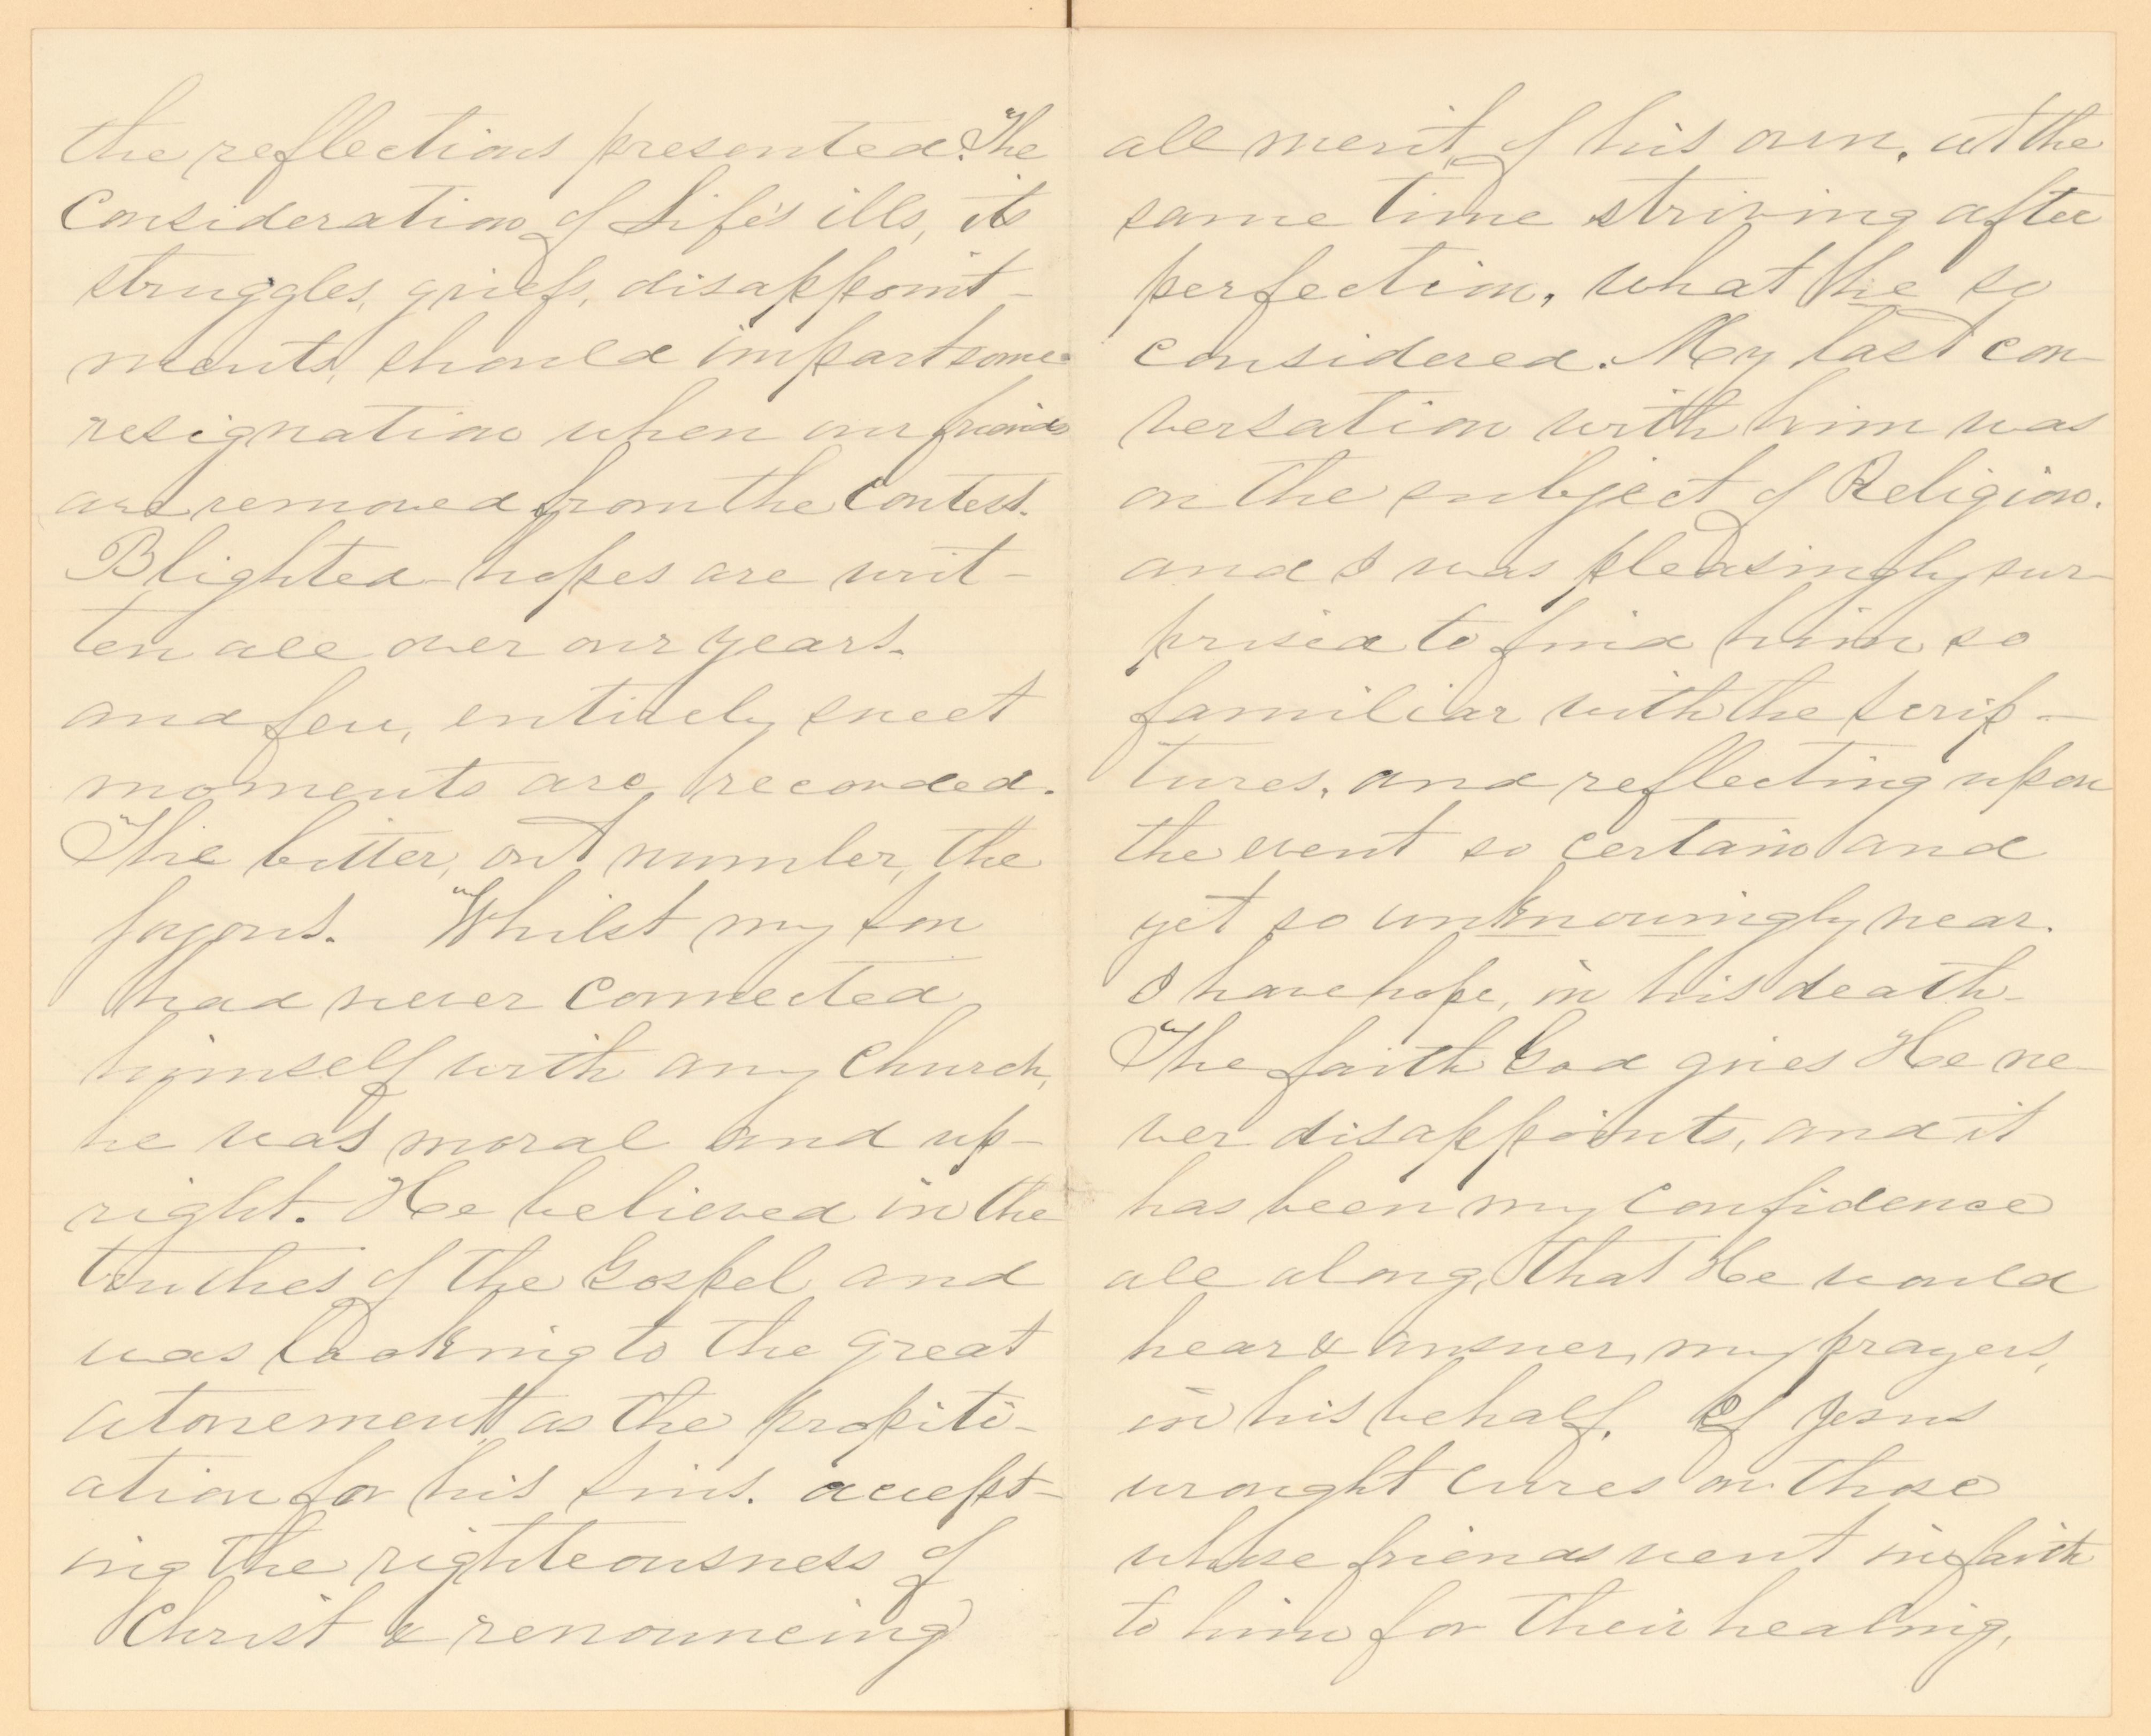 the reflections presented. The
Consideration of Life's ills, its
struggles, griefs, disappoint-
ments, should impart some
resignation when our friends
are removed from the Contest.
Blighted hopes are writ-
ten all over our years.
and few, entirely sweet
moments are recorded.
The bitter, out number, the
joyous. Whilst my son
had never connected
himself with any Church,
he was moral and up-
right. He believed in the
truthes of the Gospel and
was looking to the great
atonement, as the propiti-
ation for his sins. accept-
ing the righteousness of
Christ & renouncing
all merit of his own. at the
same time striving after
perfection, what he so
considered. My last con-
versation with him was
on the subject of Religion.
and I was pleasingly sur-
prised to find him so
familiar with the Scrip-
tures, and reflecting upon
the event so certain and
yet so unknowingly near.
I have hope, in his death.
The faith God gives He ne-
ver disappoints, and it
has been my confidence
all along, that He would
hear & answer, my prayers,
in his behalf. If Jesus
wrought cures on those
whose friends went in faith
to him for their healing,